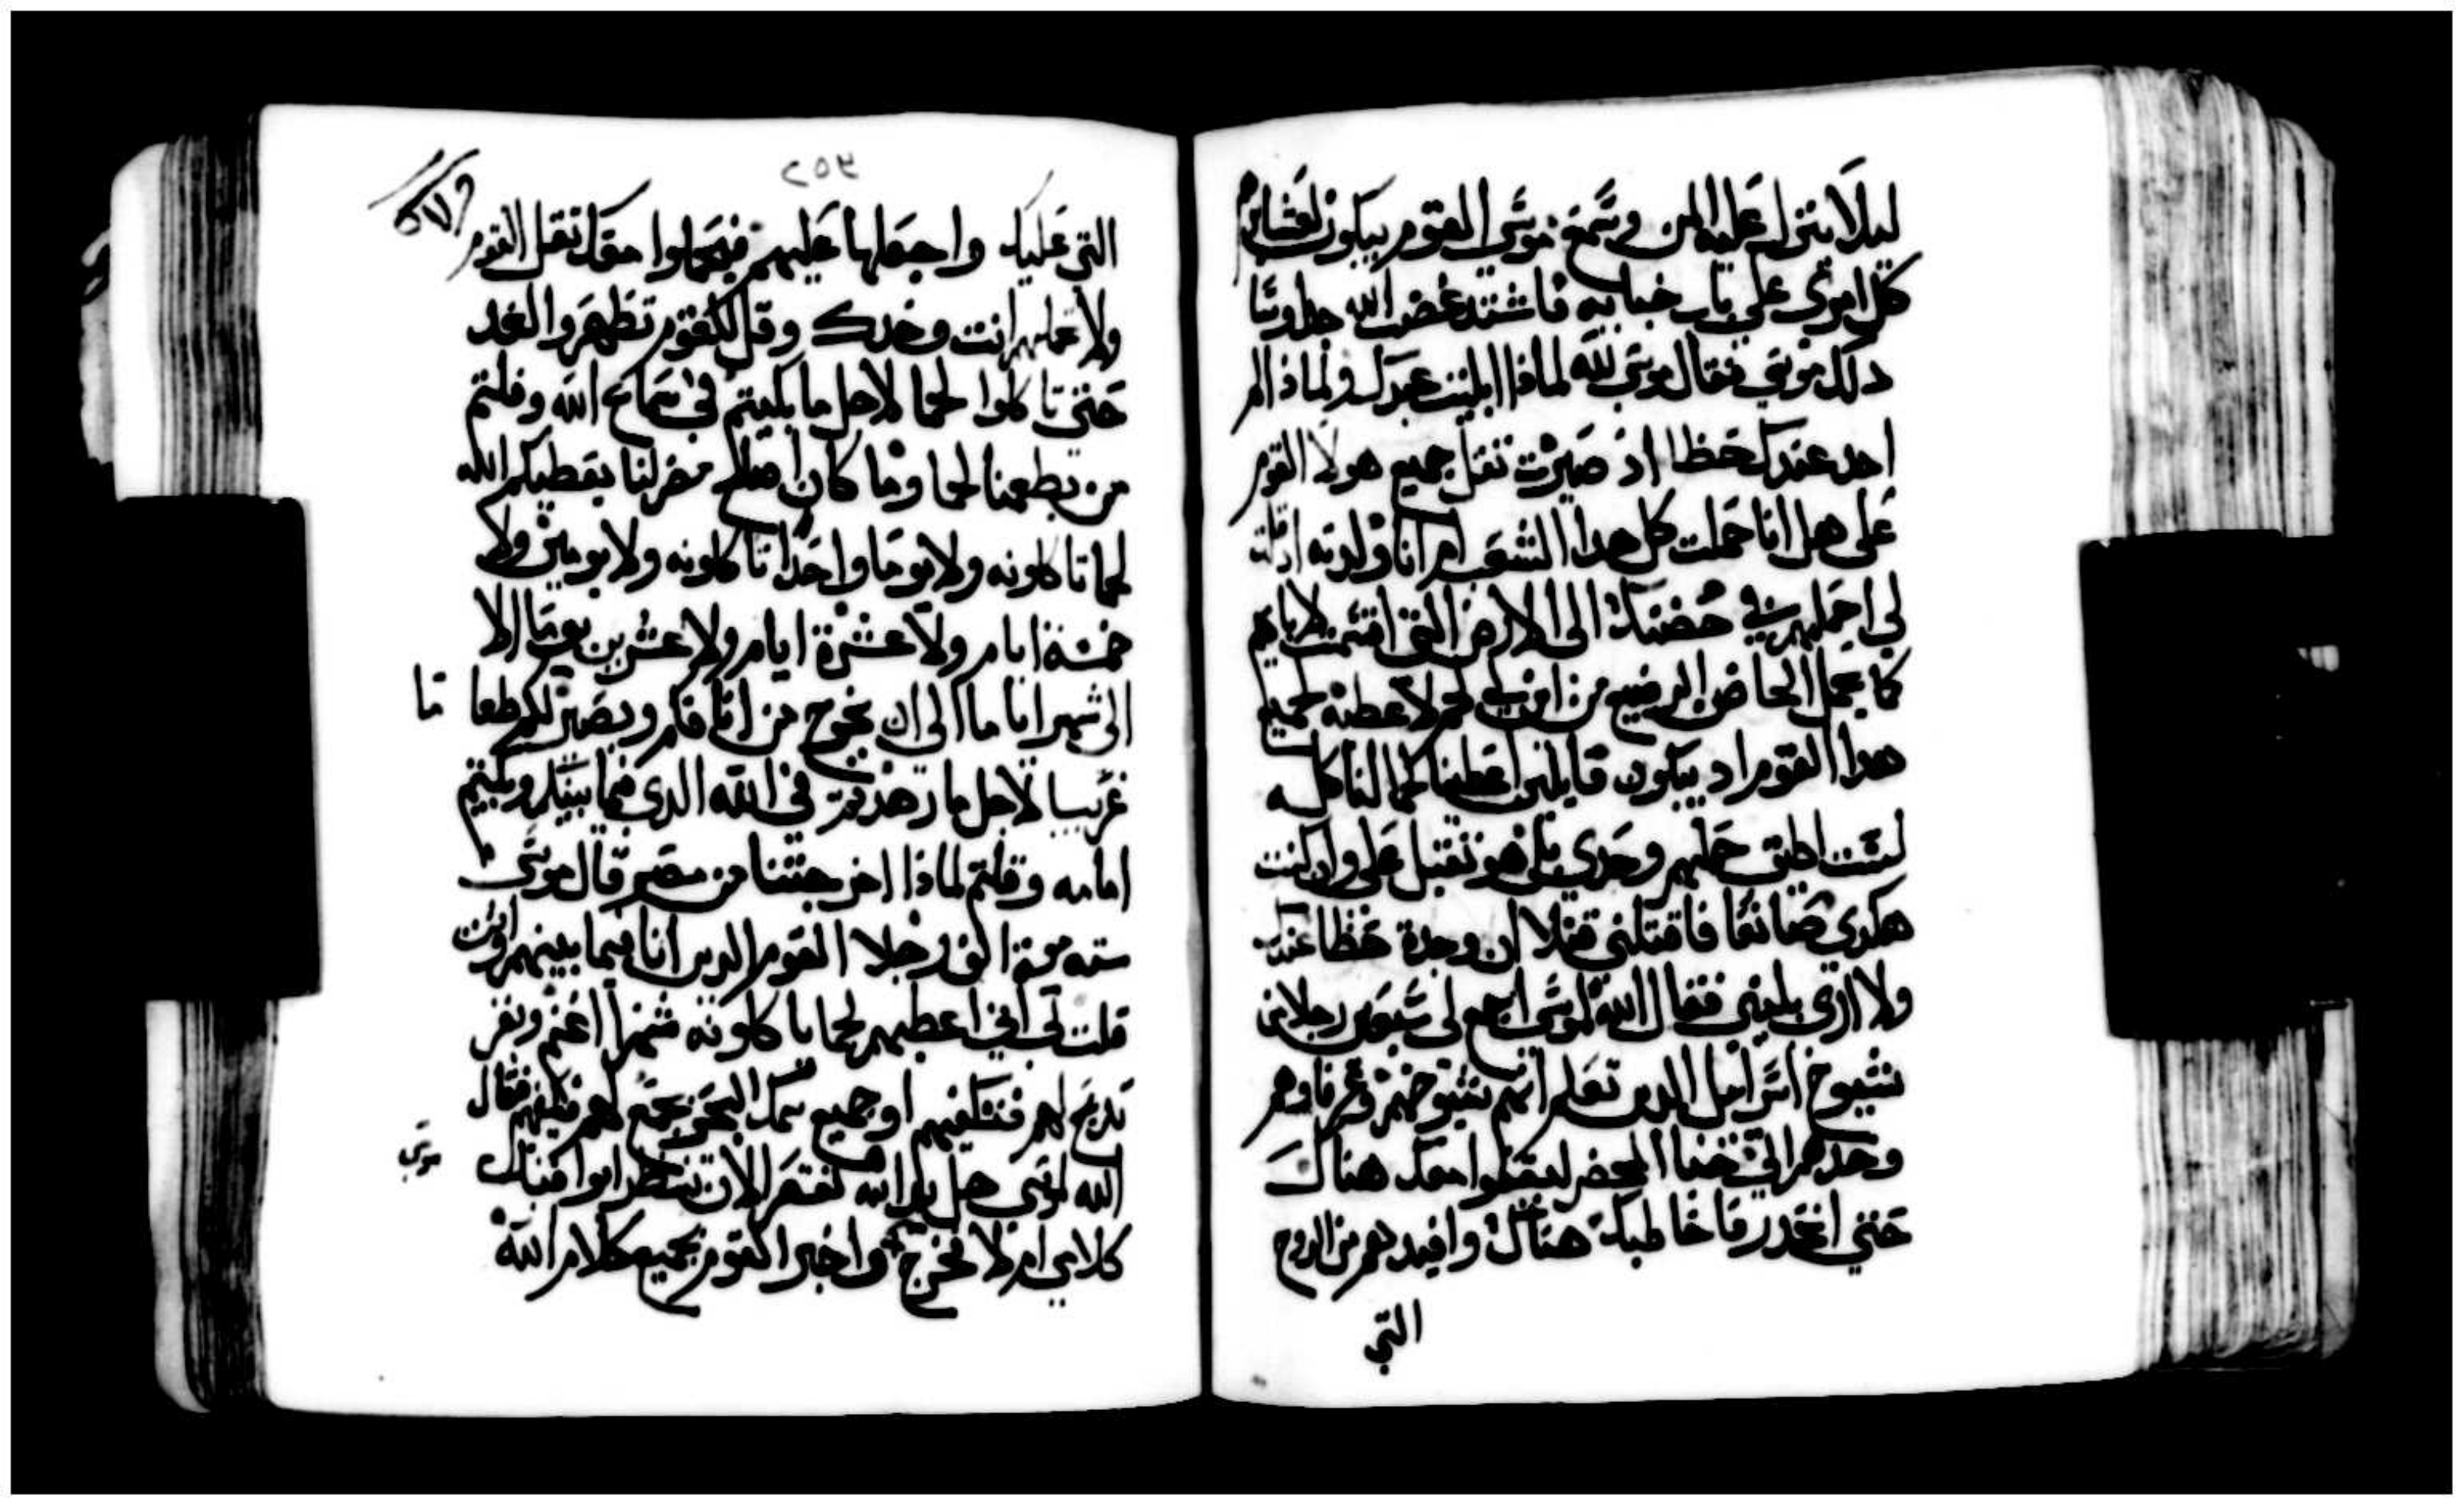 ليلا ينزل عليه المن وسمع موسى القوم يبكون لعشايرهم
كل امرى على باب خبايه فاشتد غضب الله جدا وسا
دلك موسى فقال موسى لله لماذا ابليت عبدك ولماذا لم
اجد عندك حظا اذ صيرت ثقل جميع هولا القوم
على هل انا حملت كل هدا الشعب ام انا ولدته اذ قلت
لي احملهم في حضنك الى الارض التي اقسمت لابايهم
كما يحمل الحاضن الرضيع من اين لي لحم لاعطيه لجميع
هدا القوم اد يبكون قايلين اعطينا لحما لناكله
لست اطيق حملهم وحدي بل هو ثقيل علي وان كنت
هكدى صانعا فاقتلني قتلا ان وجدة حظا عندك
ولا ارى بليتي فقال الله لموسى اجمع لي سبعين رجلا من
شيوخ اسرايل الدين تعلم انهم شيوخهم وعرفاوهم
وخدهم الى خبا المحضر ليقفوا معك هناك
حتي انحدر فاخاطبك هناك وافيد لهم من الروح
التي
٢٥٣
التي عليك واجعلها عليهم فيحملوا معك ثقل القوم
ولا تحملهم انت وحدك وقل للقوم تطهروا الغد
حتي تاكلوا لحما لاجل ما بكيتم في سماع الله وقلتم
من يطعمنا لحما وما كان اصلح مصر لنا يعطيكم الله
لحما تاكلونه ولا يوما واحدا تاكلونه ولا يومين ولا
خمسة ايام ولا عشرة ايام ولا عشرين يوما الا
الى شهر اياما الى ان يخرج من انافكم ويصير لكم طعا ما
غريبا لاجل ما زهدتم في الله الدي فيما بينكم وبكيتم
امامه وقلتم لماذا اخرجتنا من مصر قال موسى
سته مية الف رجلا القوم الدين انا فيما بينهم وانت
قلت لي اني اعطيهم لحما ياكلونه شهرا اغنم وبقر
تدبح لهم فتكفيهم او جميع سمك البحر يجمع لهم فيكفيهم فقال
الله لموسى هل يد الله تقصر الان تنظر ايوافيك موسى
كلامي ام لا فخرج واخبر القوم بجميع كلام الله